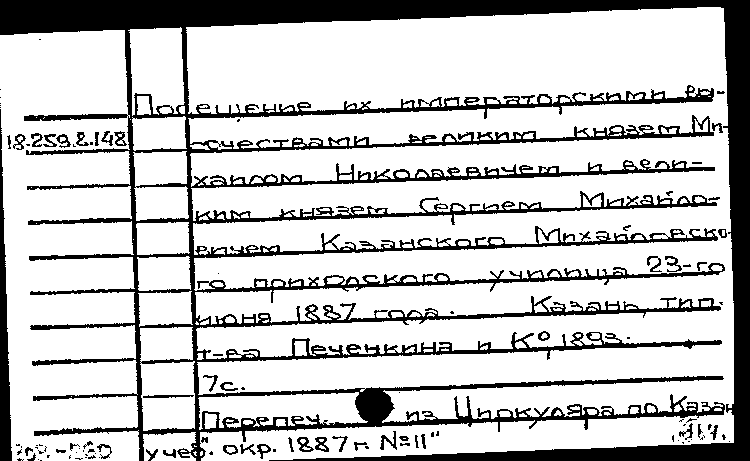 Посещение их императорскими вы-
18.259.8.148 сочествами великим князем Ми-
хаилом Николаевичем и вели-
ким князем Сергием Михайло-
вичем Казанского Михайловско-
го приходского училища 23-го
июня 1887 года. Казань, тип.
т-ва Печенкина и К⁰, 1893.
7с.
Перепеч. из Циркуляра по Казан
учеб. окр. 1887 г. №11"